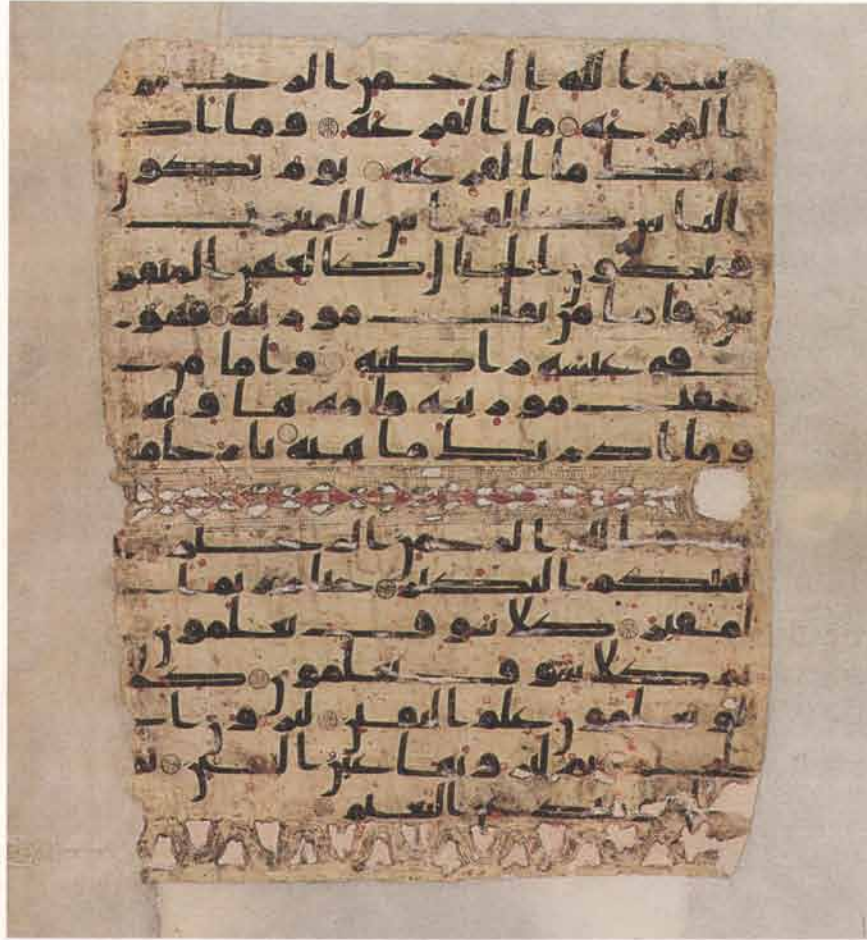 بسم الله الرحمن الرحيم
القرعه ما القرعه وما اد
ريك ما القرعه يوم يكون
الناس كالفراش المبثوث
وتكون الجبال كالعهن المنفو
ش فاما من ثقلت موزينه فهو
في عيشه راضيه واما من
خفت موزينه فامه هاويه
وما ادريك ما هيه نار حاميه
بسم الله الرحمن الرحيم
الهيكم التكاثر حتى زرتم ا
لمقبر كلا سوف تعلمون
ثم كلا سوف تعلمون كلا
لو تعلمون علم اليقين لترون ا
لجحيم ثم لترونها عين اليقين ثم
عن النعيم